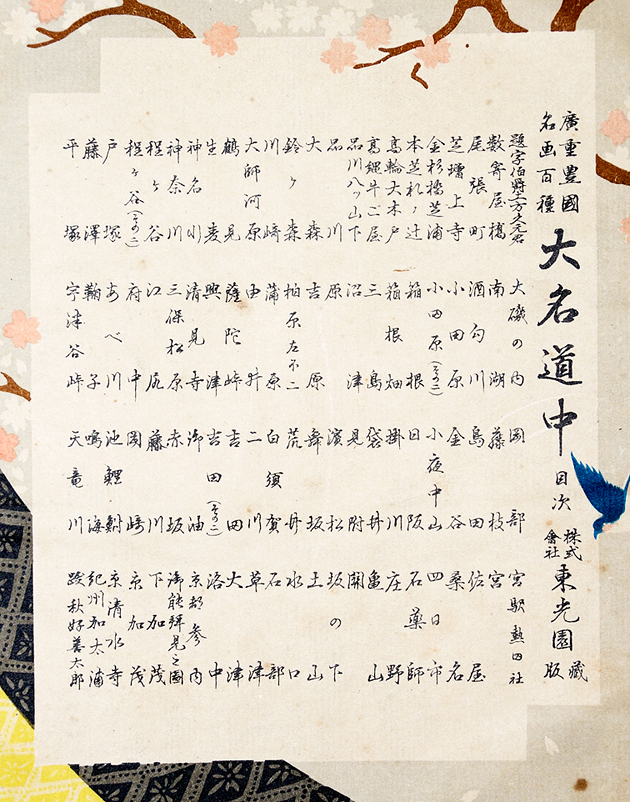 廣重豊國
名画百種
大名道中
目次
株式會社東光園
蔵版
題字伯爵土方久元君
数寄屋橋
尾張町
芝増上寺
金杉橋芝浦
本芝札ノ辻
高輪大木戸
高縄牛ご屋
品川八ツ山下
品川
大森
鈴ヶ森
川崎
大師河原
鶴見
生麦
神名川
神奈川
程ヶ谷
程ヶ谷(その二)
戸塚
藤澤
平塚
大磯の内
南湖
酒匂川
小田原
小田原(その二)
箱根
箱根畑
三島
沼津
原
吉原
柏原左不二
蒲原
由井
薩陀峠
興津
清見寺
三保松原
江尻
府中
あべ川
鞠子
宇津谷峠
岡部
藤枝
島田
金谷
小夜中山
日阪
掛川
袋井
見附
濱松
舞坂
荒井
白須賀
二川
吉田
吉田(その二)
御油
赤坂
藤川
岡崎
池鯉鮒
鳴海
天竜川
宮駅熱田社
宮
佐屋
桑名
四日市
石薬師
庄野
亀山
関
坂の下
土山
水口
石部
草津
大津
洛中
京都参内
御能拝見之圖
下加茂
京加茂
京清水寺
紀州加太浦
跋秋好善太郎